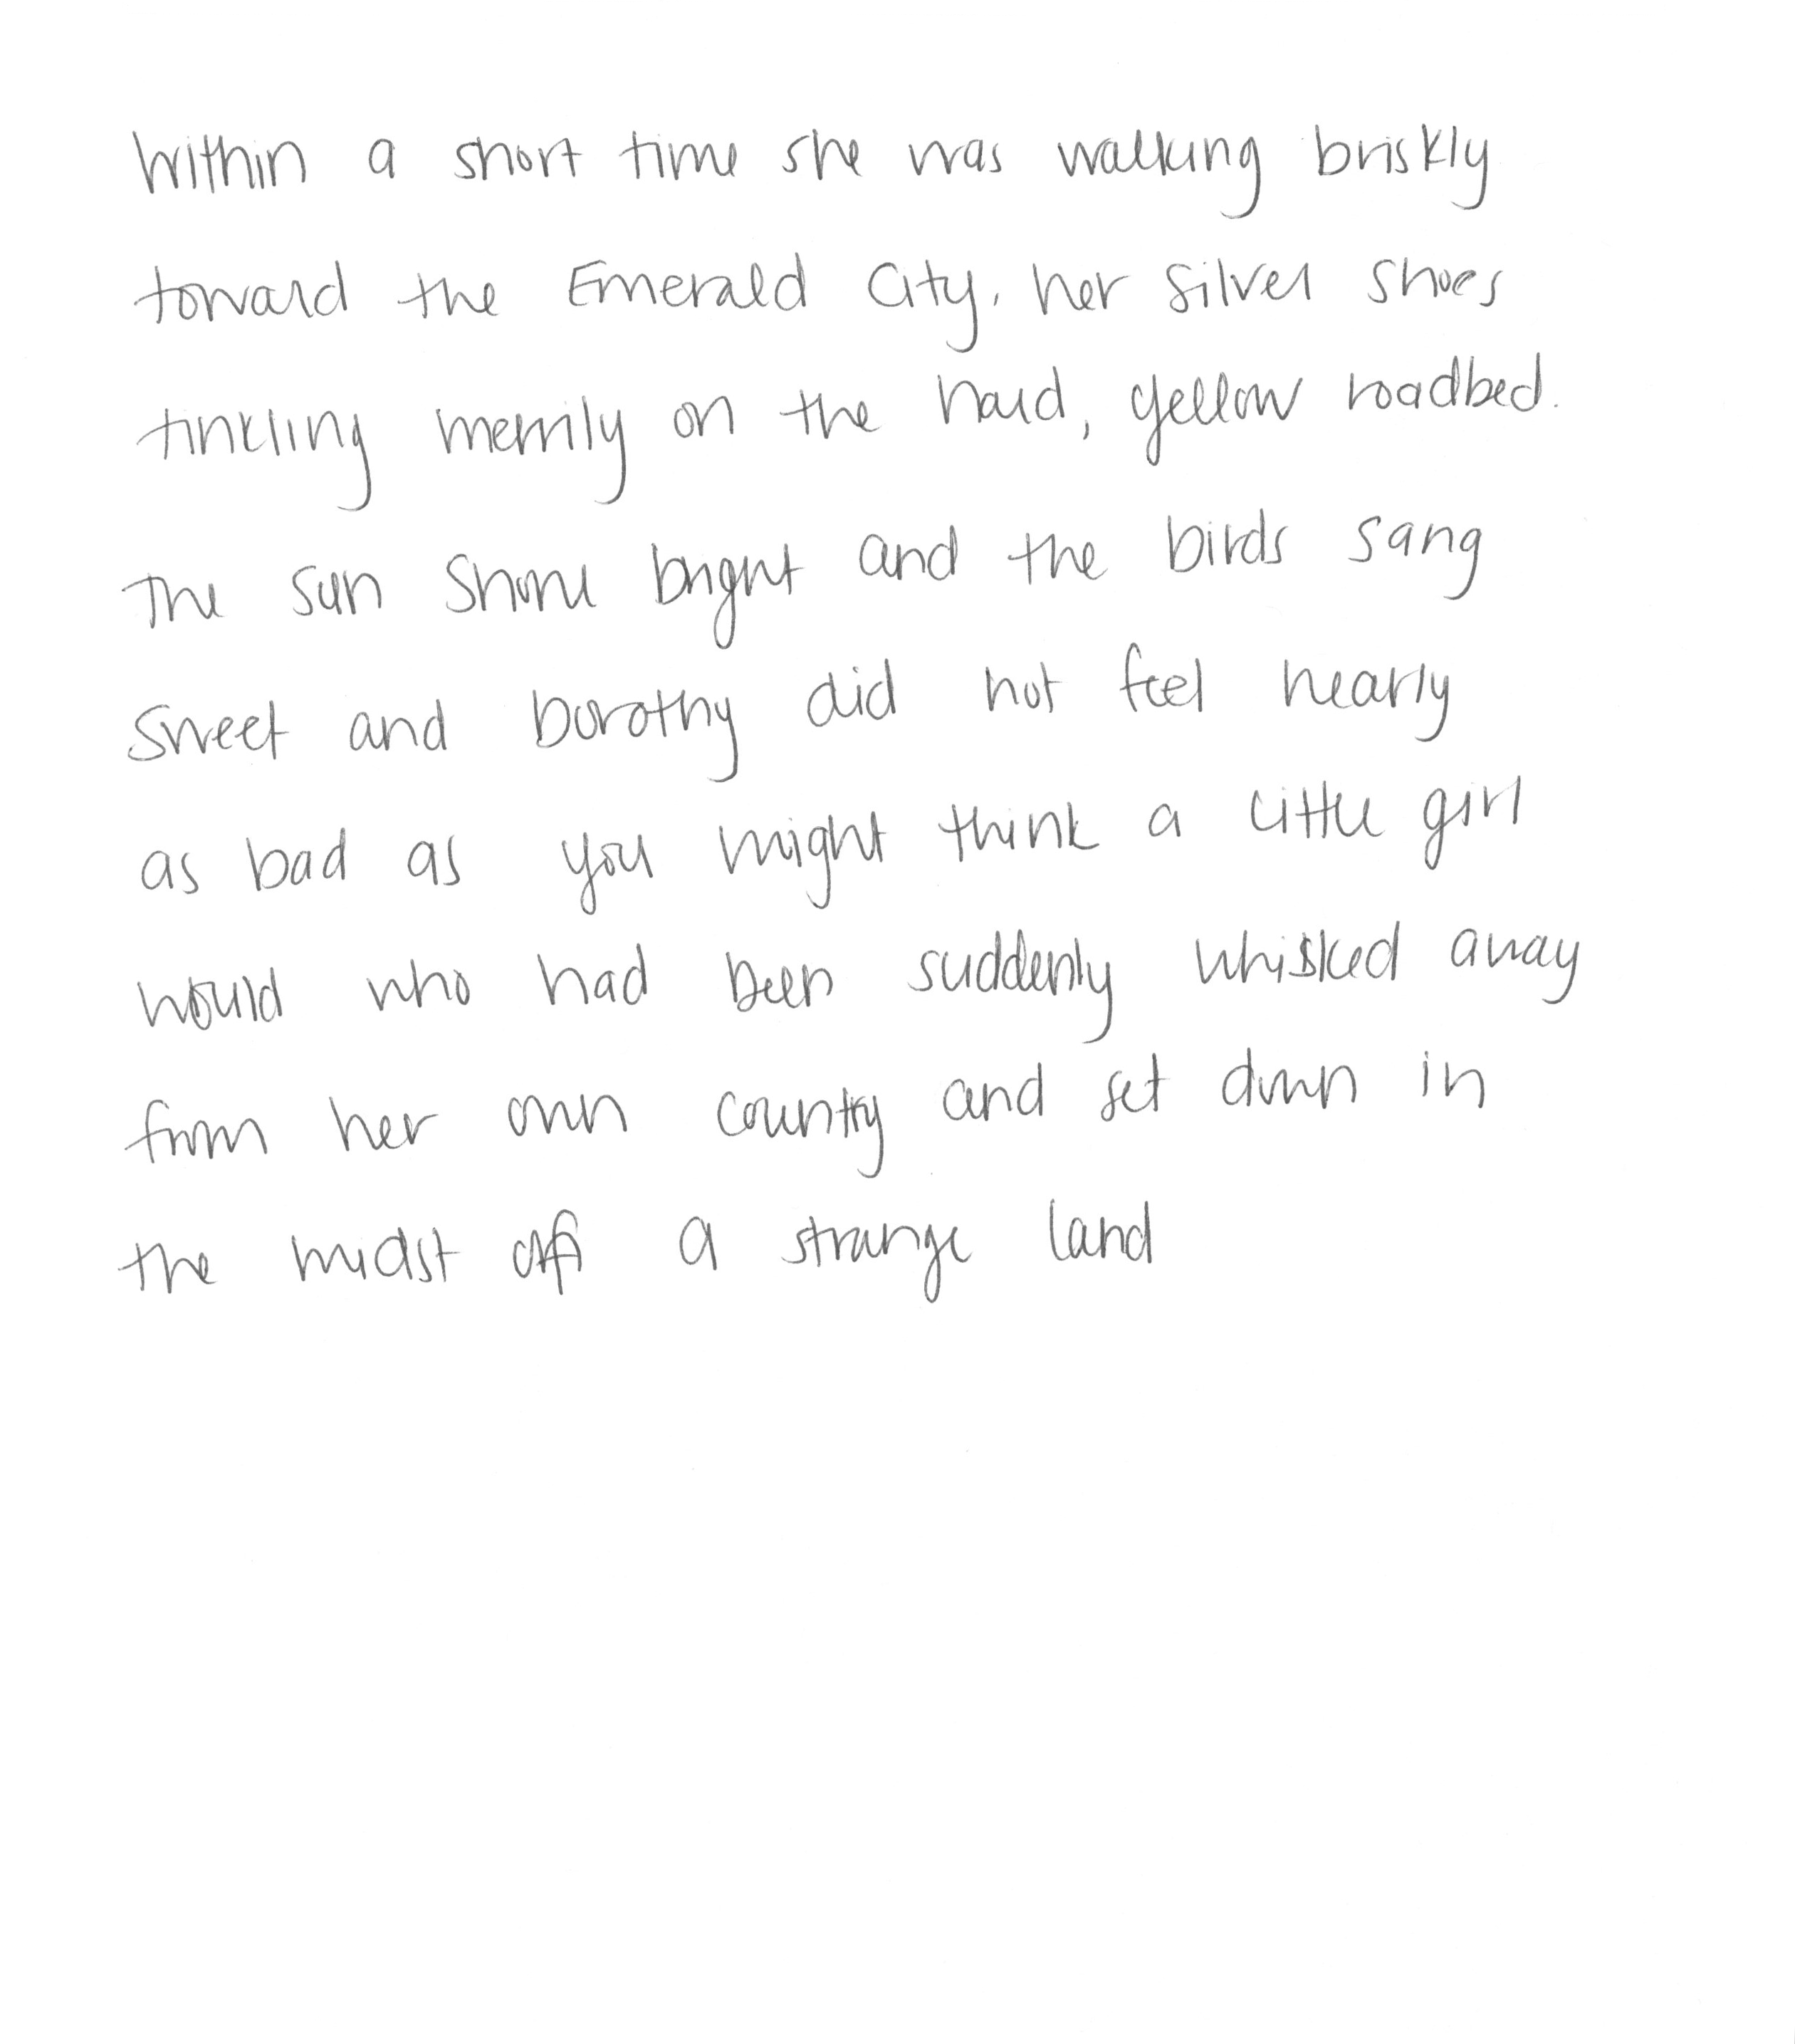 Within a short time she was walking briskly
toward the Emerald City, her silver shoes
tinkling merrily on the hard, yellow roadbed.
The sun shone bright and the birds sang
sweet and Dorothy did not feel nearly
as bad as you might think a little girl
would who had been suddenly whisked away
from her own country and set down in
the midst of a strange land